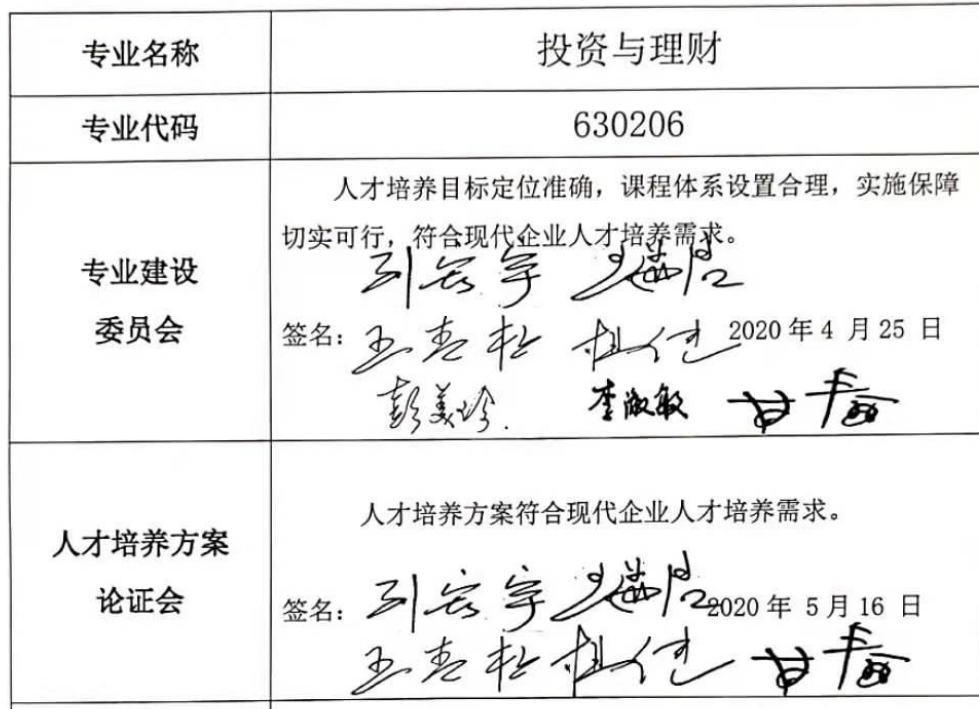 专业名称
投资与理财
专业代码
630206
专业建设
委员会
人才培养目标定位准确，课程体系设置合理，实施保障
切实可行，符合现代企业人才培养需求。
签名：
2020年4月25日
彭美玲 李微敏
人才培养方案
论证会
人才培养方案符合现代企业人才培养需求。
签名：
2020年5月16日